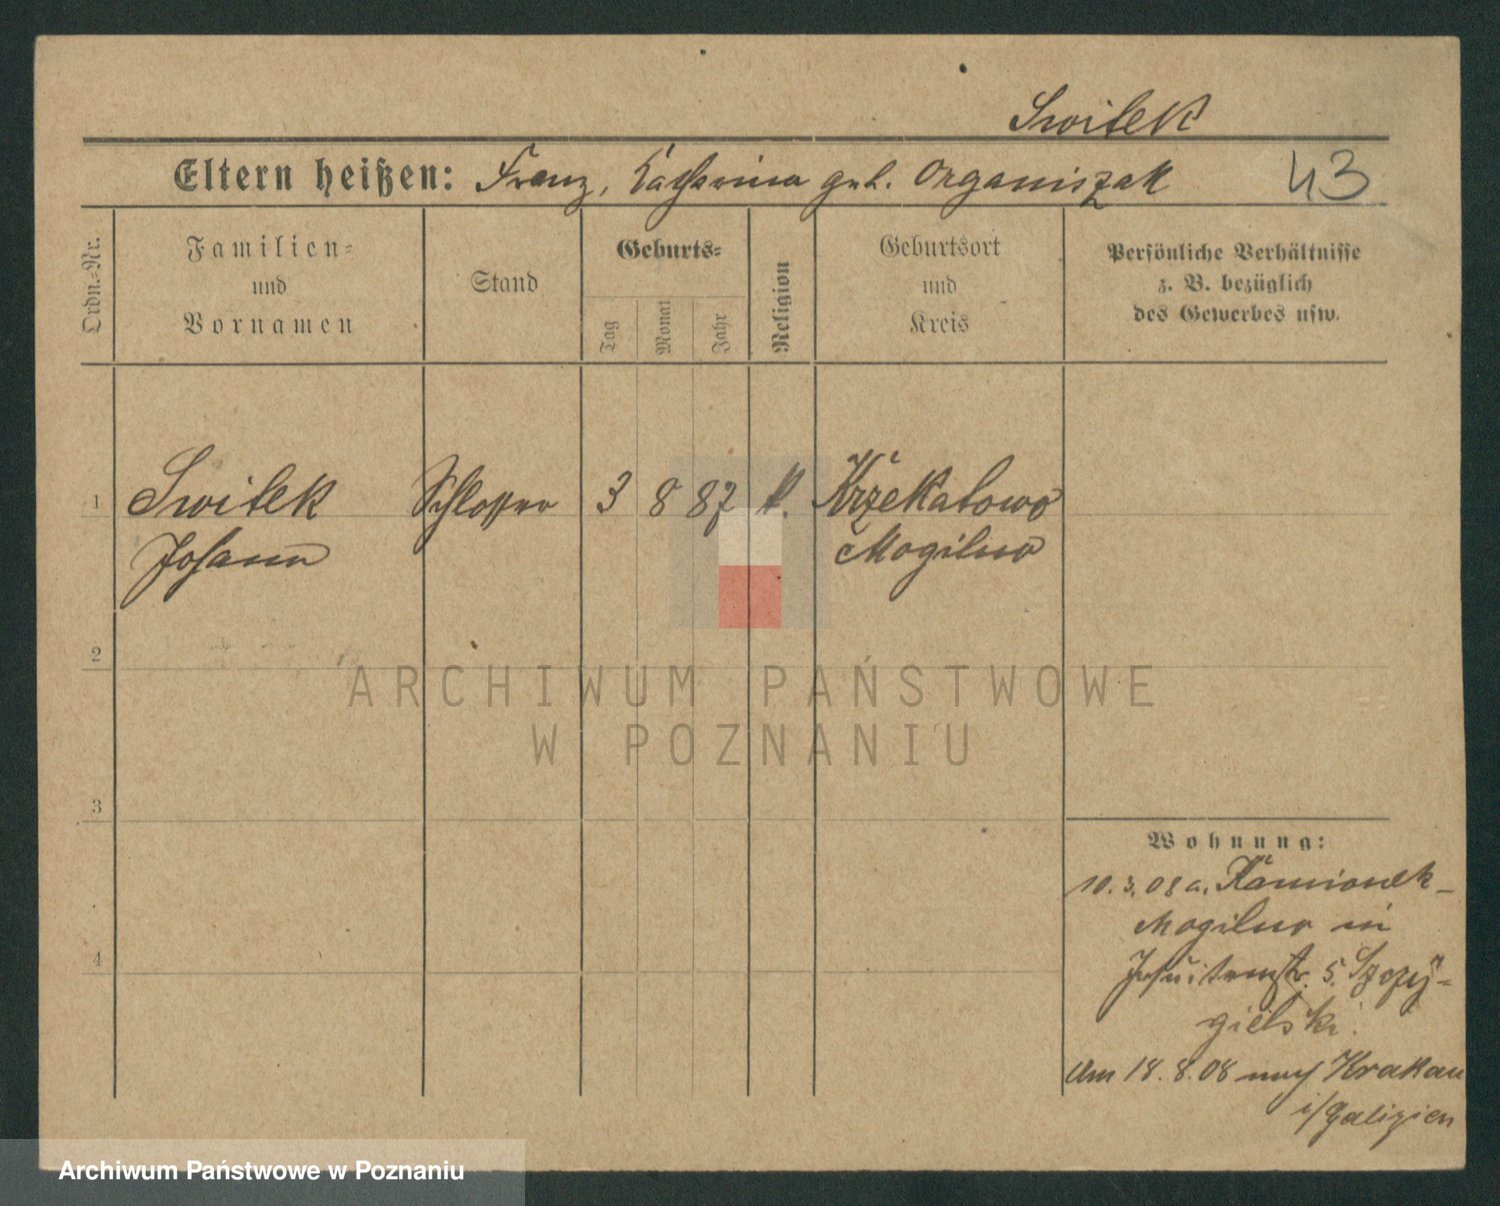 Switek
Eltern heißen: Franz, Katharina geb. Organiszak
43
Ordn.=Nr.
Familien=
und
Vornamen
Stand
Geburts=
Tag
Monat
Jahr
Religion
Geburtsort
und
Kreis
Persönliche Verhältnisse
z. B. bezüglich
des Gewerbes usw.
1 Switek Schlosser 3 8 87 k. Krzekatowo
Johann Mogilno
2
ARCHIWUM PAŃSTWOWE
W POZNANIU
3
Wohnung:
10.3.08 a. Kamionek-
Mogilno in
4
Jesuitenstr. 5.
gielski.
Am 18.8.08 nach Krakau
i/Galizien
Archiwum Państwowe w Poznaniu